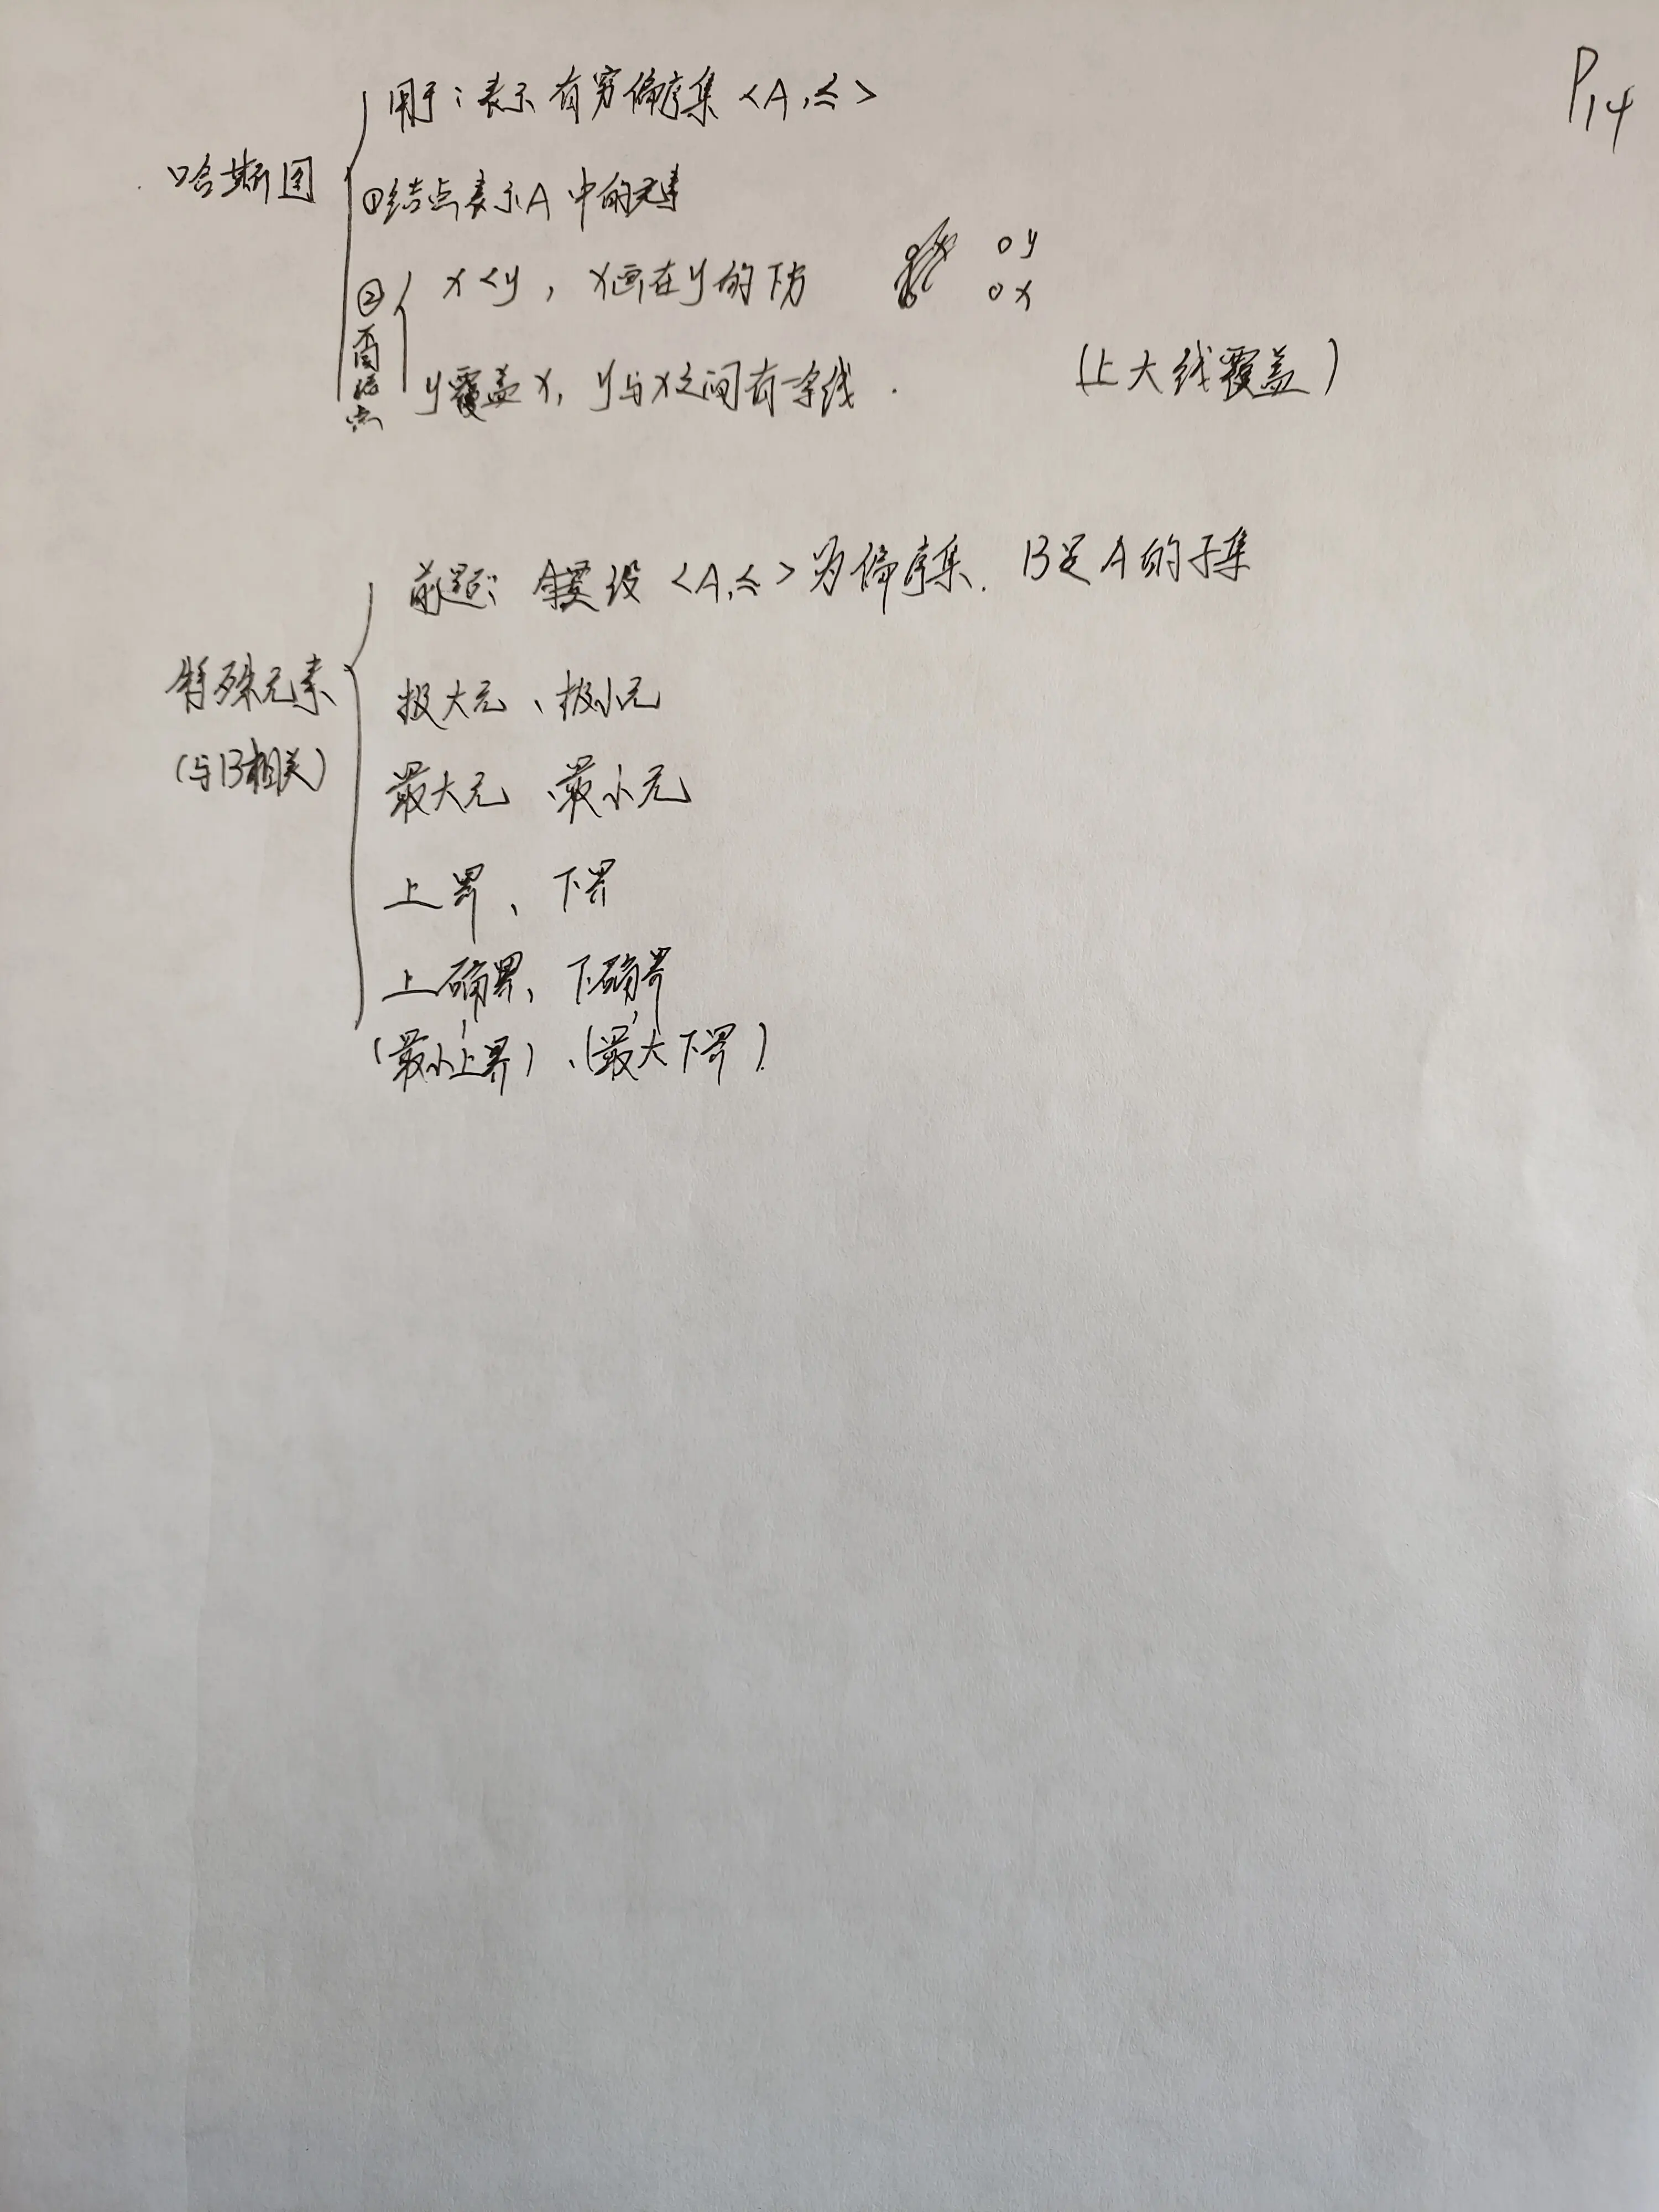 P14
哈斯图
用于：表示有穷偏序集<A,≤>
①结点表示A中的元素
②两结点
x<y，x画在y的下方
y
x
y覆盖x，y与x之间有一条线.
(上大线覆盖)
特殊元素
(与B相关)
前提：设<A,≤>为偏序集. B是A的子集
极大元、极小元
最大元、最小元
上界、下界
上确界、下确界
(最小上界)、(最大下界)